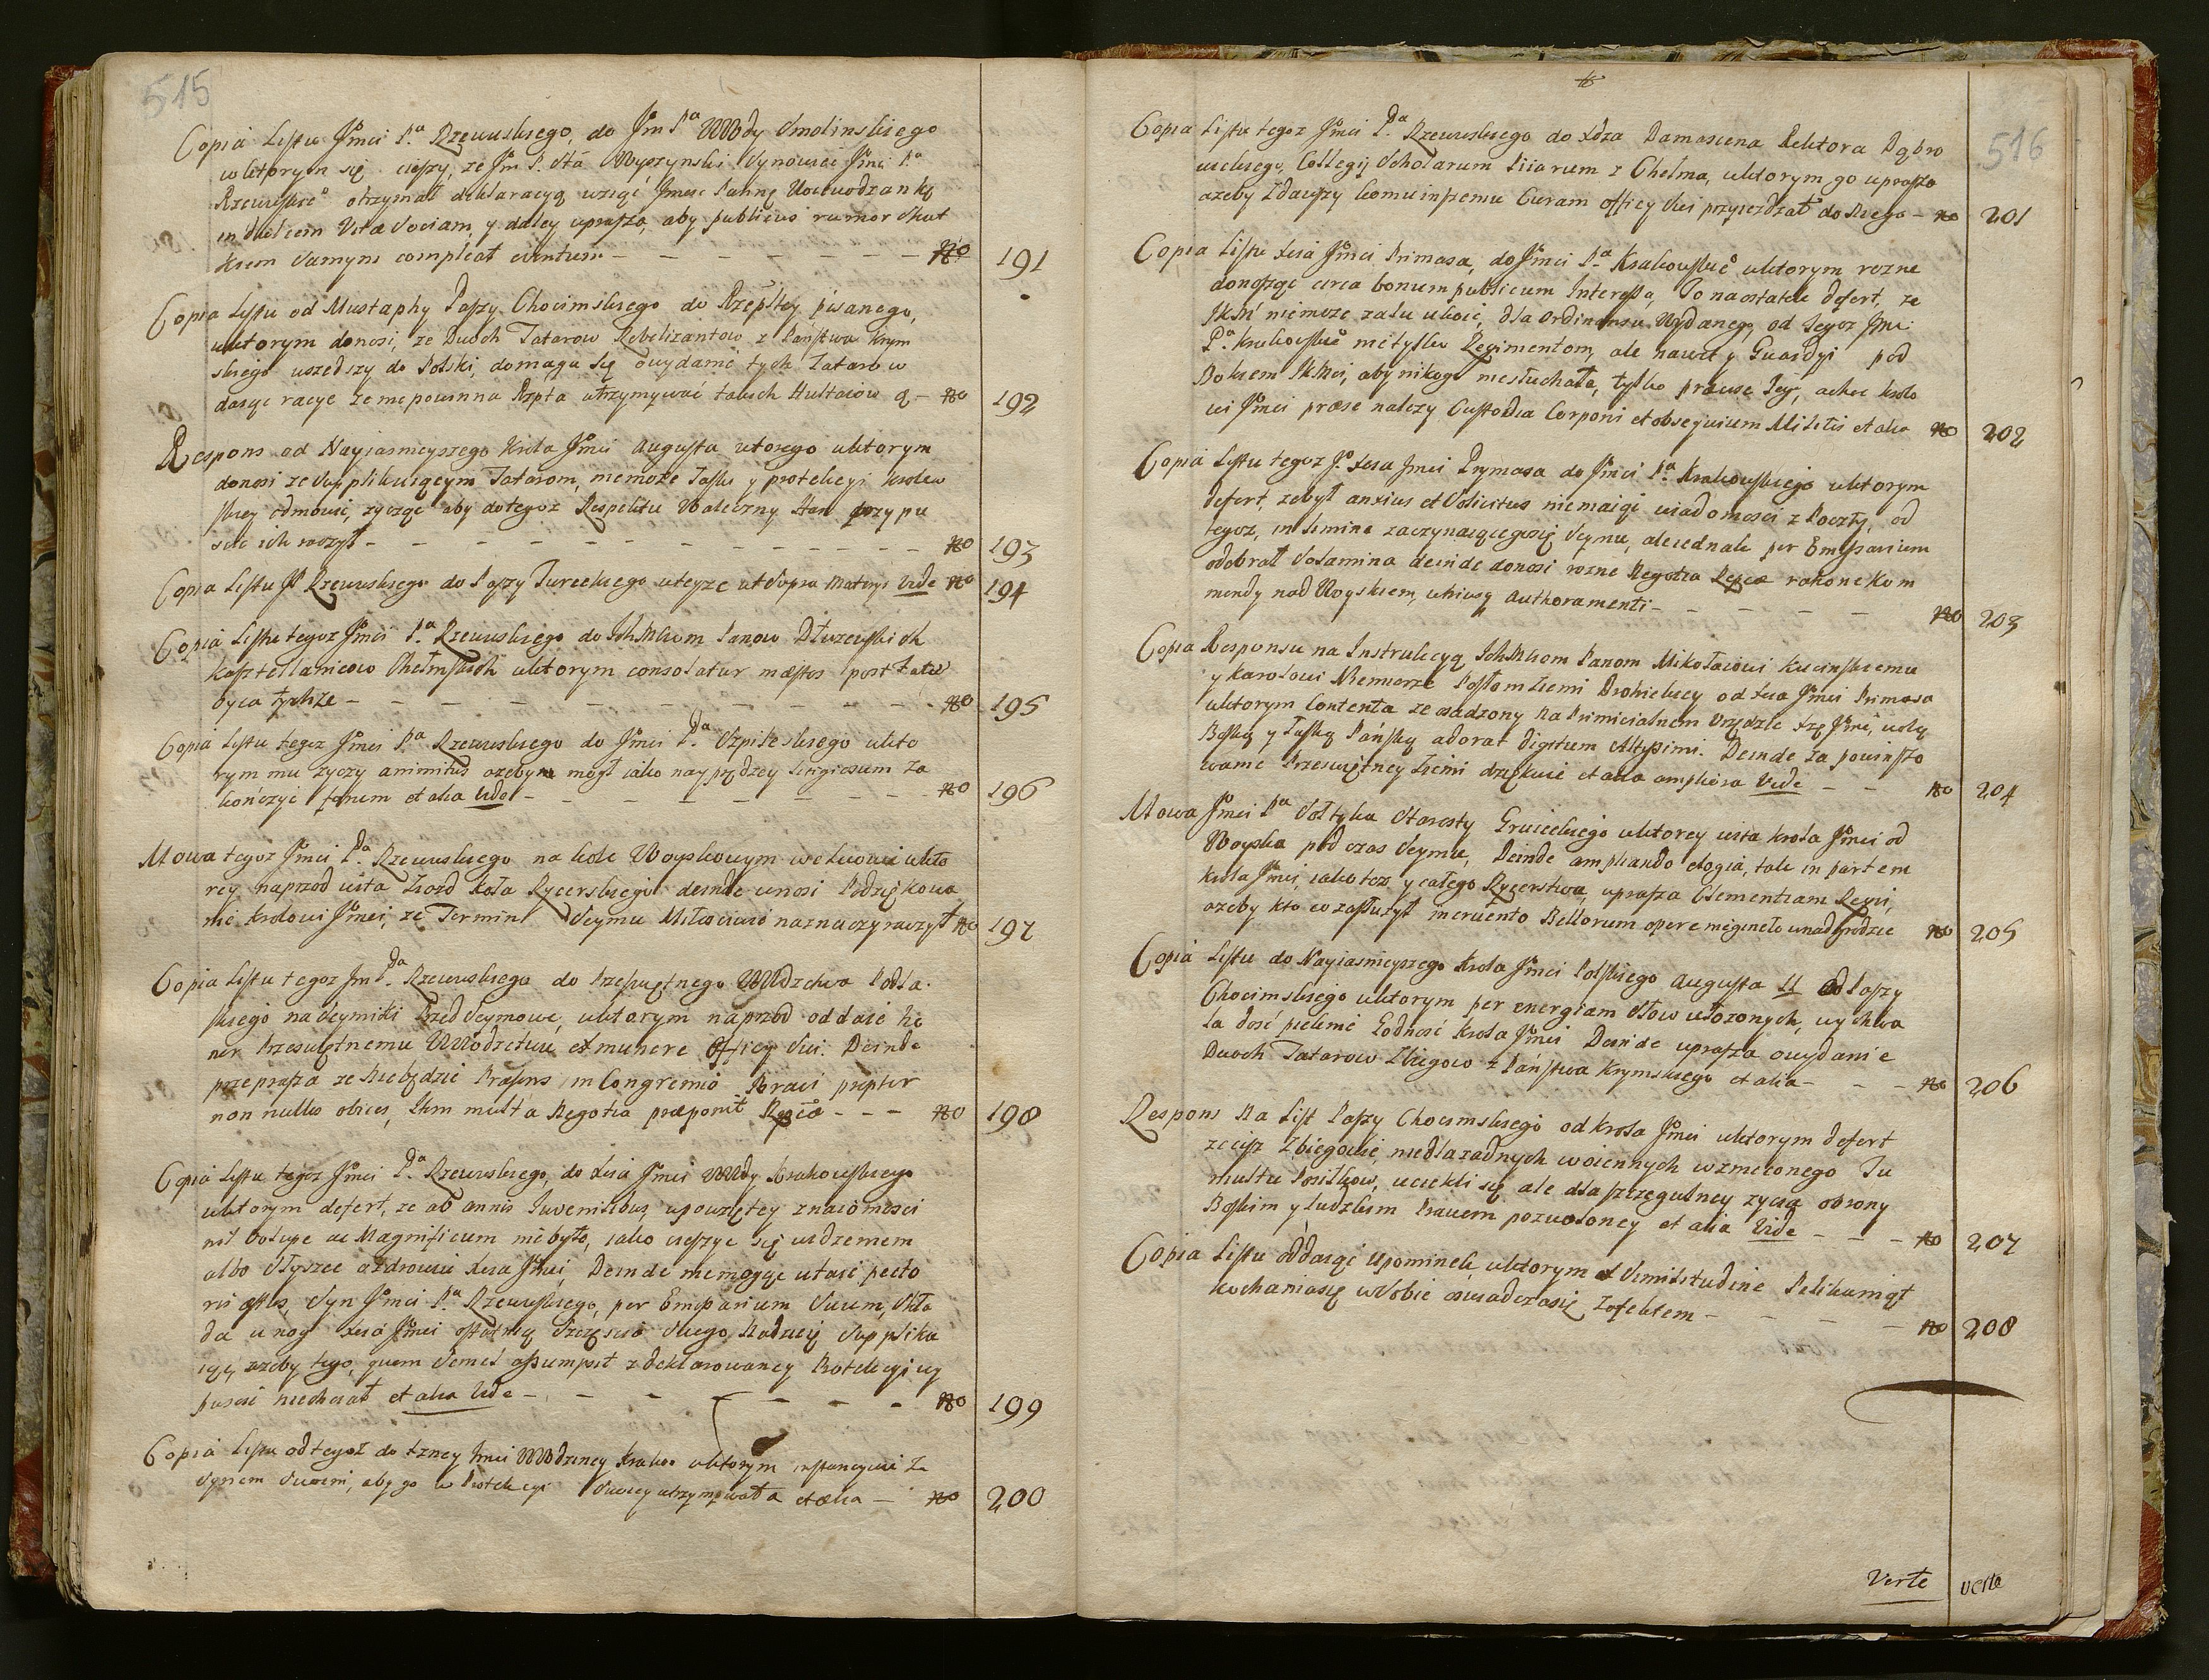 515
Copia Listu Jmci Pa Rzewuskiego, do Jm Pa WWdy Smolinskiego
w ktorym się cieszy, ze Jm P. Stá Wyszynski Synowiec Jmci Pa
Rzewuskieo otrzymał deklaracyą wziąć Jmсi Pannę Woiewodzankę
in dulcem Vitæ Sociam, y daley uprasza, aby publicus rumor skut
kiem samym compleat eventum - No 191
Copia Listu od Mustaphy Paszy Chocimskiego do Rzepltey pisanego,
wktorym donosi, ze Dwoch Tatarow Rebelizantow z Panstwa Krym
skiego uszedszy do Polski, domaga się owydanie tych Tatarow
daiąc racye ze niepowinna Rzpta utrzymywać takich Hultaiow - No 192
Respons od Nayiasnieyszego Krola Jmci Augusta wtorego wktorym
donosi ze Supplikuiącym Tatarom, niemoze Łaski y protekcyi krolew
skiey odmowić, zycząc aby dotegoz Respektu Waleczny Han przypu
scić ich raczył - No 193
Copia Listu JP Rzewuskiego do Paszy Tureckiego wteyze ut Supra Materyi Vide No 194
Copia Listu tegoz Jmci Pa Rzewuskiego do Ichmciom Panow Dłuzewskich
Kasztellanicow Chełmskich wktorym consolatur mæstos post fata
oyca tychze - No 195
Copia Listu tegoz Jmci Pa Rzewuskiego do Jmci Pa Szpilewskiego wkto
rym mu zyczy animitus azeby mogł iako nayprędzey litigiosum za
kończyć forum et alia Vide - No 196
Mowa tegoz Jmci Pa Rzewuskiego na kole Woyskowym we Lwowie wkto
rey naprzod wita Ziazd Koła Rycerskiego deinde wnosi Podziękowa
nie Krolowi Jmci, ze Termin Seymu Miłosciwie naznaczyć raczył No 197
Copia Listu tegoz Jm Pa Rzewuskiego do Przeswiętnego WWdztwa Podla
skiego na Seymiki Przed Seymowe, wktorym naprzod oddaie ho
nor Przeswiętnemu WWodzctwu ex munere Officij Sui. Deinde
przeprasza ze niebędzie Præsens in Congremio Braci propter
non nullos obices, Item multa Negotia præponit Regia - - - No 198
Copia Listu tegoz Jmci Pa Rzewuskiego, do Xcia Jmci WWdy Krakowskiego
wktorym defert, ze ab annis Juvenilibus, upowziętey znaiomosci
nil Volupe ac Magnificum niebyło, iako cieszyć się widzeniem
albo słyszeć ozdrowiu Xcia Jmci, Deinde niemogąc utaić pecto
ris æstus, Syn Jmci Pa Rzewuskiego, per Emissarium Suum, Skła
da unog Xcia Jmci ostatnią Szczęscia Swego Nadzieię Supplika
iąc, azeby tego, quem Semel assumpsit z deklarowaney Protekcyi wy
puscić niechciał et alia Vide - No 199
Copia Listu od tegoz do Xzney Jmci WWdziney Krako: wktorym instancyuie za
Synem Swoim, aby go w Protekcyi Swoiey utrzymywała et alia - No 200
516
Copia Listu tegoz Jmci Pa Rzewuskiego do Xdza Damascena Rektora Dąbro
wickiego, Collegij Scholarum Piiarum z Chelma, wktorym go uprasza
azeby Zdawszy komu inszemu Curam Officij Sui przyiezdzał do niego - No 201
Copia Listu Xcia Jmci Primasa, do Jmci Pa Krakowskieo wktorym rozne
donosząc circa bonum publicum Interessa, To naostatek defert, ze
JKM niemoze zalu ukoić, dla Ordinansu Wydanego, od tegoz Jmci
Pa Krakowskieo nietylko Regimentom, ale nawet y Guardyi pod
Bokiem JKMci, aby nikogo niesłuchała, tylko prawie Jey, a choc krolo
wi Jmci præse nalezy Custodia Corporis et obsequium Militis et alia No 202
Copia Listu tegoz Jo. Xcia Jmci Prymasa do Jmci Pa Krakowskiego wktorym
defert, zebył anxius et Solicitus niemaiąc wiadomosci z Poczty, od
tegoz, in limine zaczynaiącegosię Seymu, aleiednak per Emissarium
odebrał Solamina deinde donosi rozne Negotia Regia ratione Kom
mendy nad Woyskiem, ukiusq Authoramenti - No 203
Copia Responsu na Instrukcyą Ichmciom Panom Mikołaiowi Kucinskiemu
y Karolowi Niemierze Posłom Ziemi Drohickiey od Xcia Jmci Primasa
wktorym Contenta ze osadzony na Primicialnem Urzędzie Xżę Jmć, wolą
Boską y łaską Pańską adorat digitum Altissimi. Deinde Za powinszo
wanie Przeswiętney Ziemi dziękuie et alia ampliora Vide - No 204
Mowa Jmci Pa Sołtyka Starosty Grueckiego wktorey wita krola Jmci od
Woyska pod czas Seymu, Deinde ampliando elogia, tak in partem
krola Jmci, iako tez y całego Rycerstwa, uprasza Clementiam Regis,
azeby kto co zasłuzył mercento Bellorum opere nieginęło unadgrodzie No 205
Copia Listu do Nayiasnieyszego Krola Jmci Polskiego Augusta II Od Paszy
Chocimskiego wktorym per energiam słow ułozonych, wychwa
la dosć pieknie Godnosć Krola Jmci Deinde uprasza owydanie
Dwoch Tatarow Zbiegow z Państwa Krymskiego et alia - - - No 206
Respons na List Paszy Chocimskiego od Krola Jmci wktorym defert
ze cisz Zbiegowie, niedlazadnych woiennych wznieconego Tu
multu Posiłkow, uciekli się, ale dla szczegulney zycia obrony
Boskim y ludzkim Prawem pozwoloney et alia Vide - - - No 207
Copia Listu oddaiąc Upominek, wktorym Similitudine Pelikaniąt
kochaniasię wSobie oswiadczasię Zafektem - No 208
Verte verte